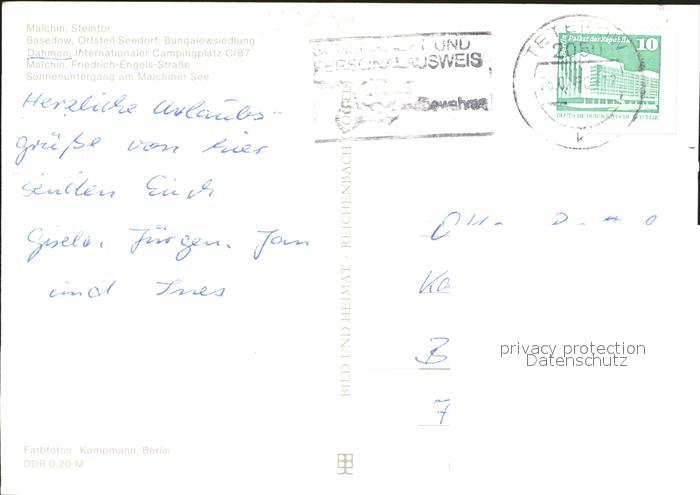 Malchin, Steintor
Basedow, Ortsteil Seedorf, Bungalowsiedlung
Dahmen, Internationaler Campingplatz C/87
Malchin, Friedrich-Engels-Straße
Sonnenuntergang am Malchiner See
Herzliche Urlaubs-
grüße von hier
senden Euch
Gisela, Jürgen, Jan
und Ines
Farbfotos: Kampmann, Berlin
DDR 0,20 M
BILD UND HEIMAT · REICHENBACH (VOGTL)
UND
PERSONALAUSWEIS
bewahren
TETEROW
2050
k
Palast der Republik 10
DEUTSCHE DEMOKRATISCHE REPUBLIK
B
7
privacy protection
Datenschutz